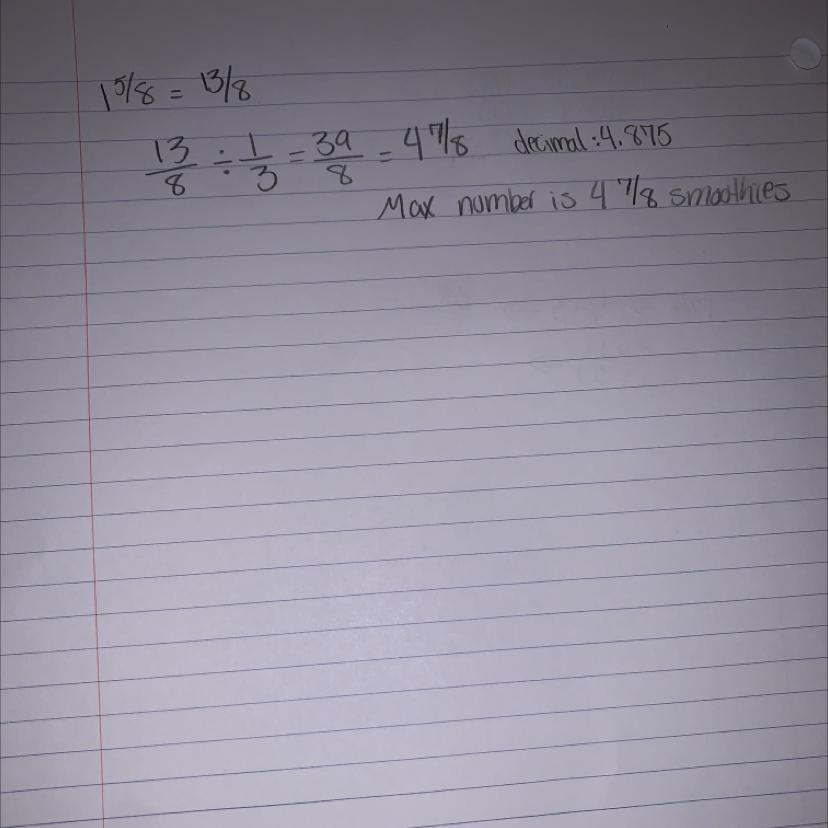 1 5/8 = 13/8
13/8 ÷ 1/3 = 39/8 = 4 7/8 decimal: 4.875
Max number is 4 7/8 smoothies